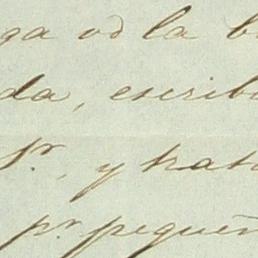 ga vd la b
da, escrib
Sr., y trat
pr. pequeñ